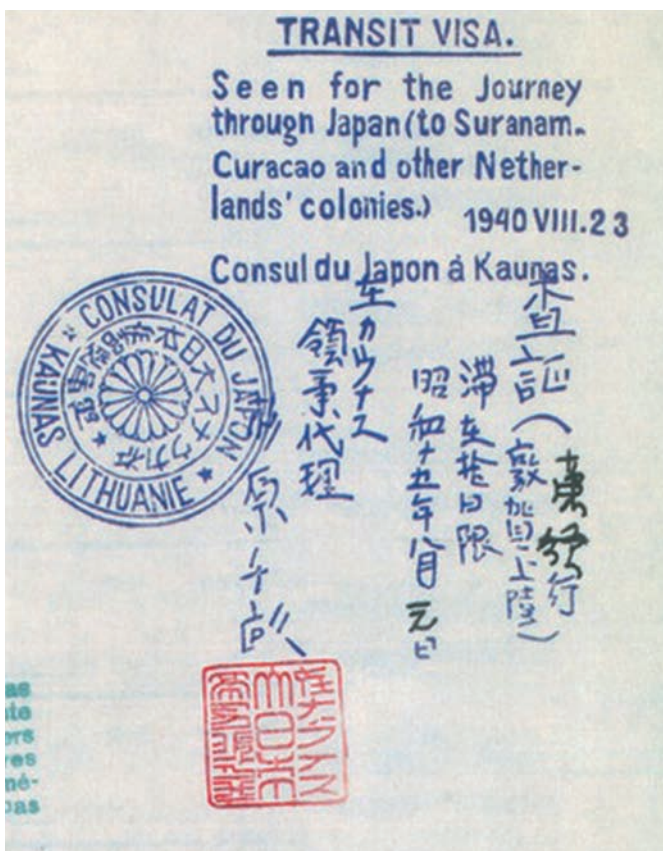 TRANSIT VISA.
Seen for the Journey
through Japan (to Suranam.
Curacao and other Nether-
lands' colonies.)
1940 VIII.23
Consul du Japon á Kaunas.
CONSULAT DU JAPON
KAUNAS LITHUANIE
査証(敦賀上陸)
行
滞在拾日限
昭和十五年八月 日
在カウナス
領事代理
杉原千畝
大日本
as
te
ers
res
né-
pas